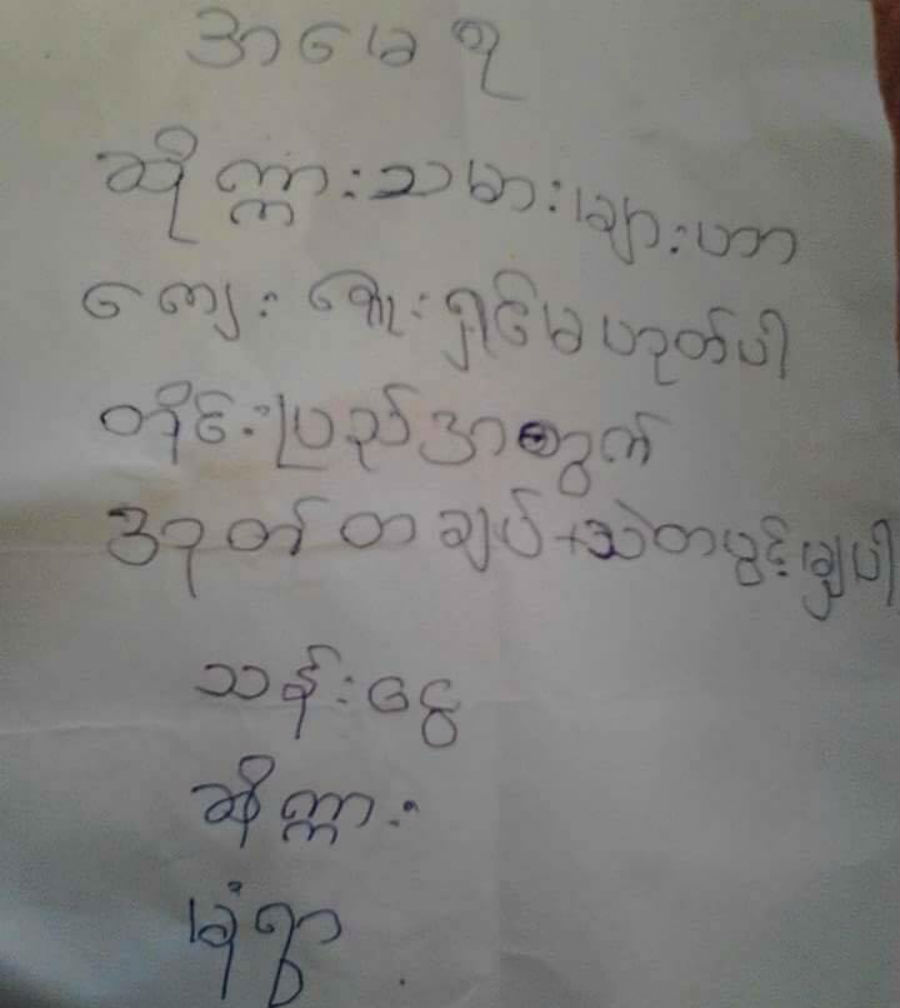 အမေရ
ဆိုက္ကားသမားများဟာ
ကျေးဇူးရှင်မဟုတ်ပါ
တိုင်းပြည်အတွက်
အုတ်တချပ်+သဲတပွင့်မျှပါ
သန်းငွေ
ဆိုက္ကား
မုံရွာ